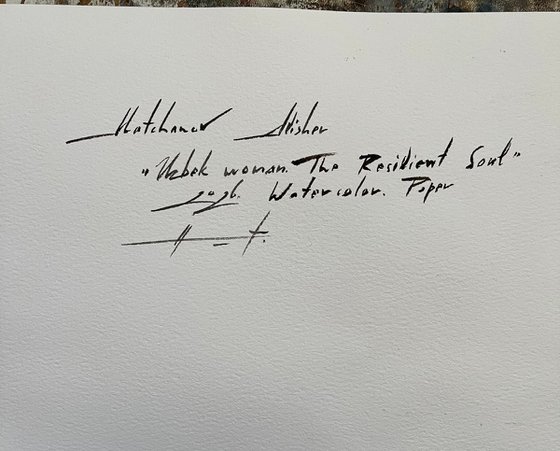 Matchanov Alisher
"Uzbek woman. The Resilient Soul"
2026. Watercolor. Paper